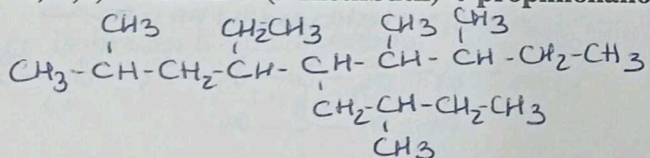 CH3 CH2CH3 CH3 CH3
CH3-CH-CH2-CH-CH-CH-CH-CH2-CH3
CH2-CH-CH2-CH3
CH3